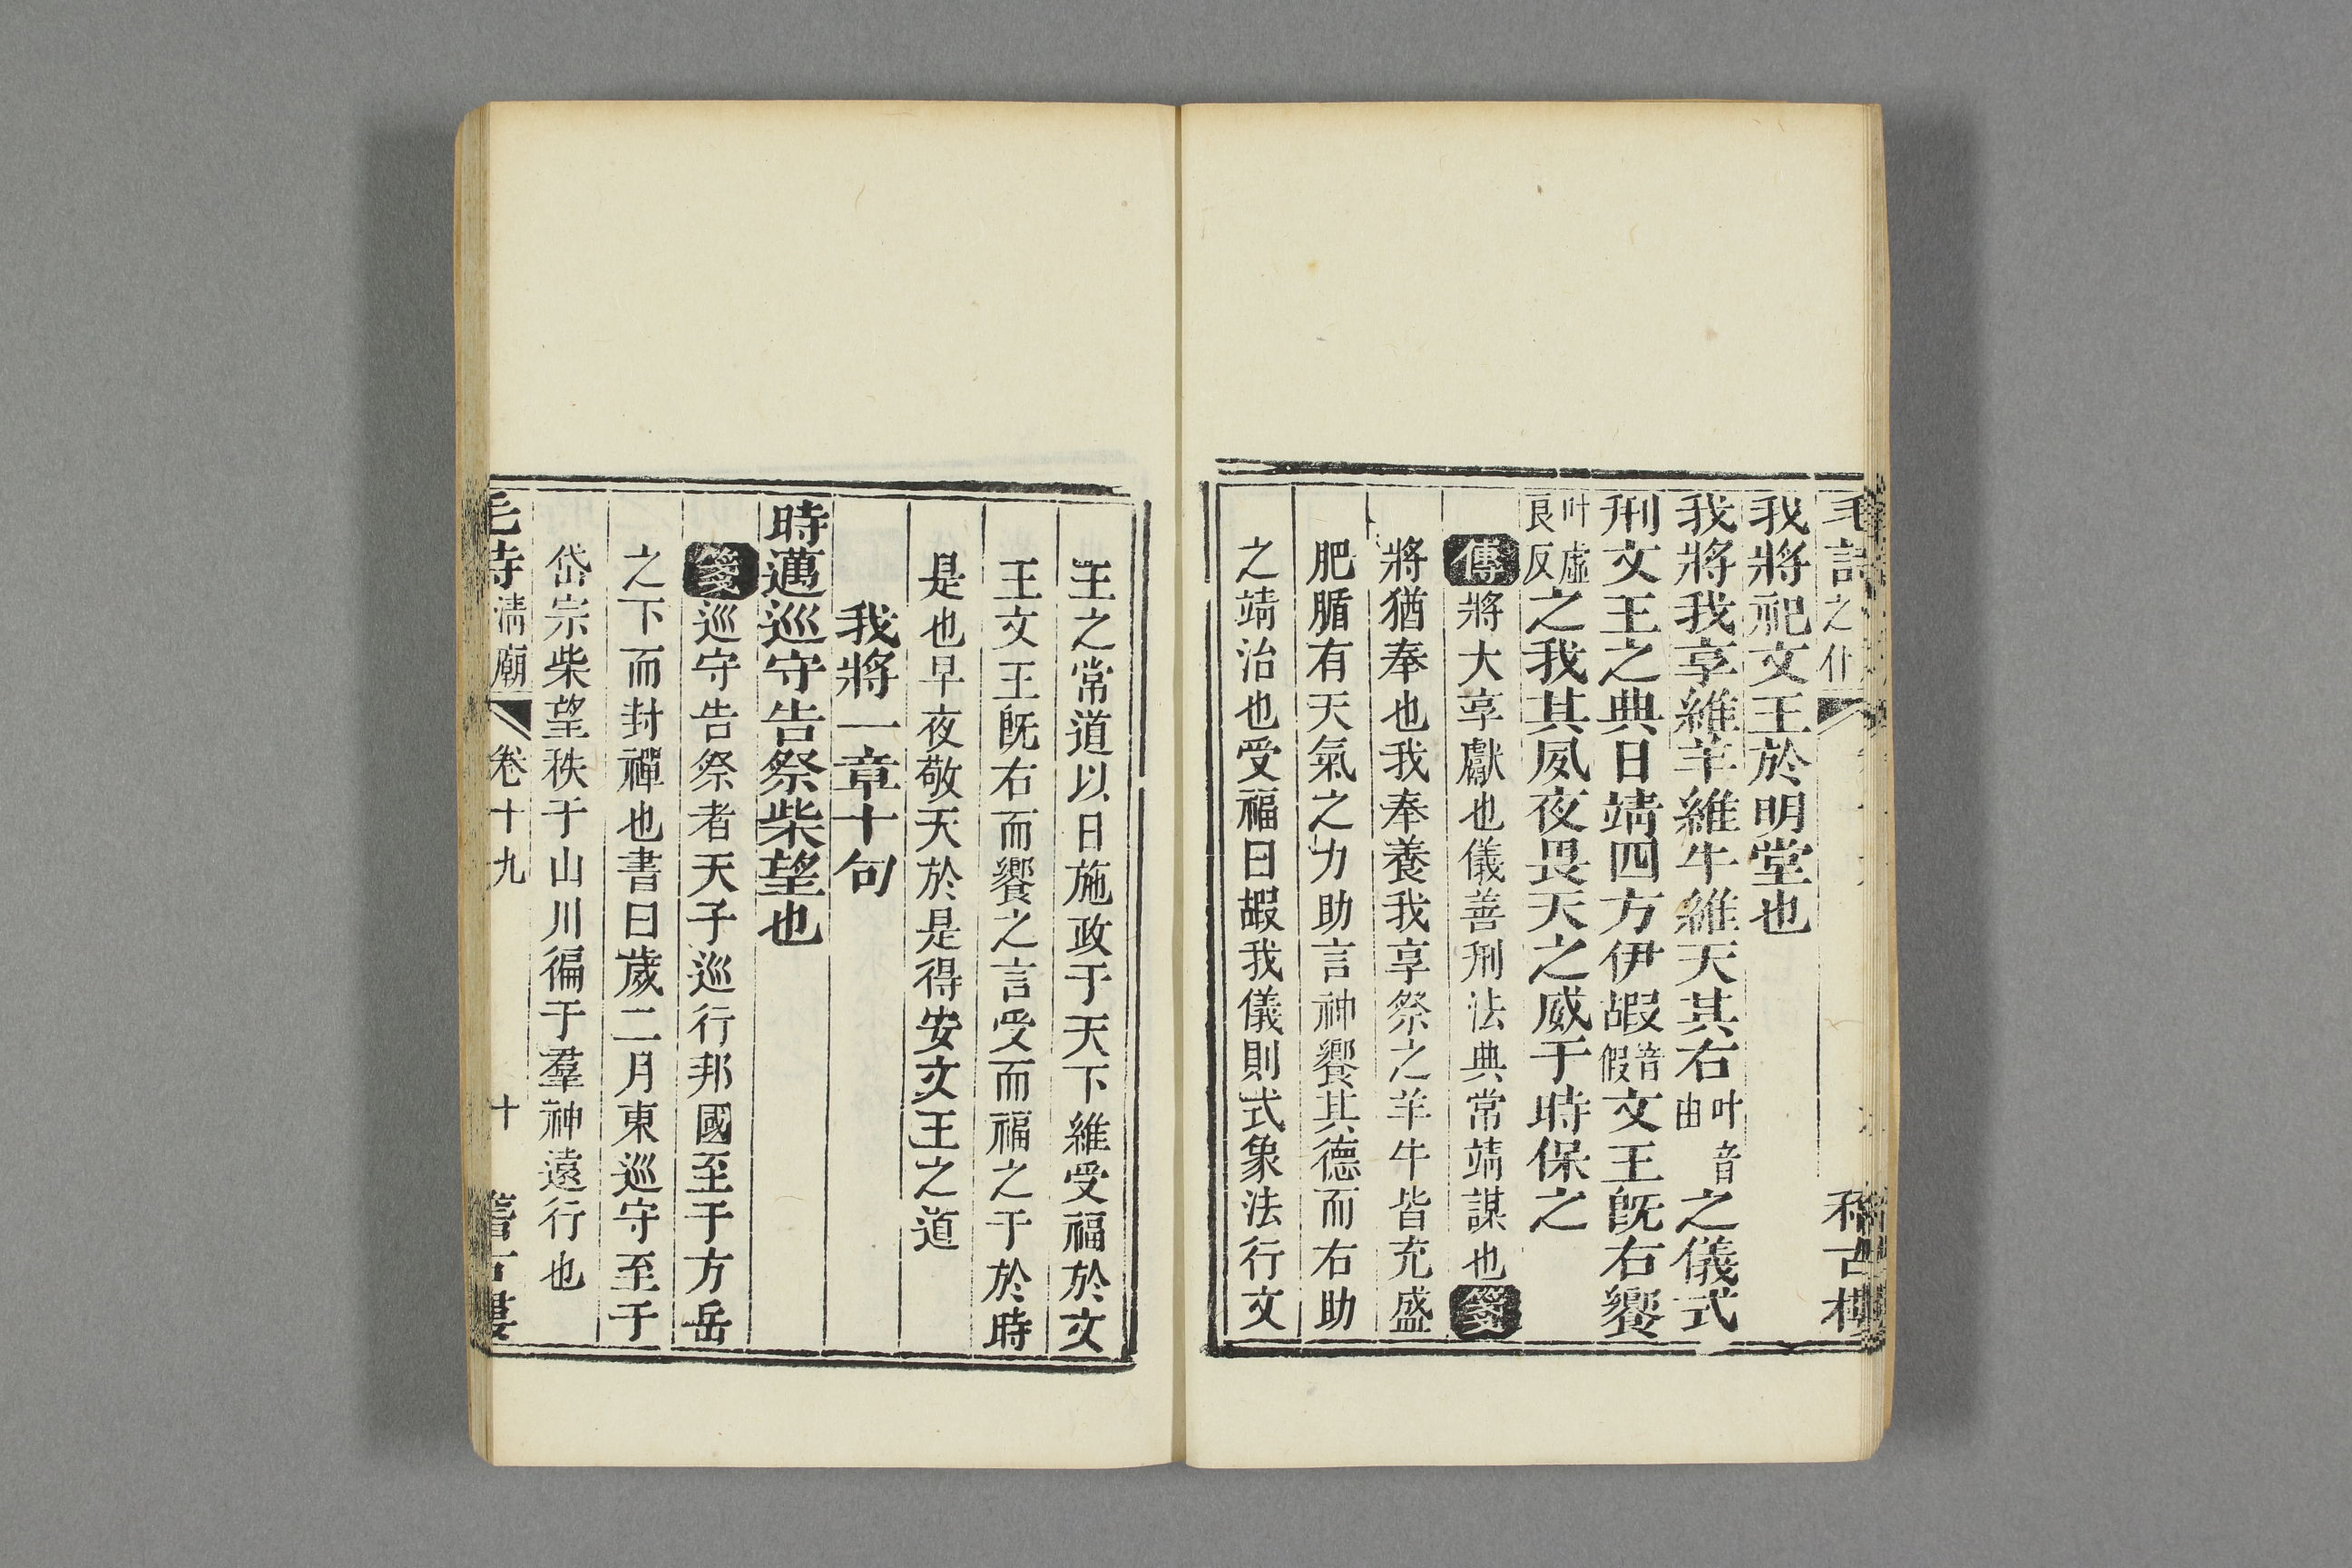 毛詩之什
我將祀文王於明堂也
我將我享維羊維牛維天其右叶音由之儀式
刑文王之典日靖四方伊嘏音假文王旣右饗
叶虛良反之我其夙夜畏天之威于時保之
傳將大享獻也儀善刑法典常靖謀也箋
將猶奉也我奉養我享祭之羊牛皆充盛
肥腯有天氣之力助言神饗其德而右助
之靖治也受福曰嘏我儀則式象法行文
王之常道以日施政于天下維受福於文
王文王旣右而饗之言受而福之于於時
是也早夜敬天於是得安文王之道
我將一章十句
時邁巡守告祭柴望也
箋巡守告祭者天子巡行邦國至于方岳
之下而封禪也書曰歲二月東巡守至于
岱宗柴望秩于山川徧于羣神遠行也
淸廟 卷十九 十